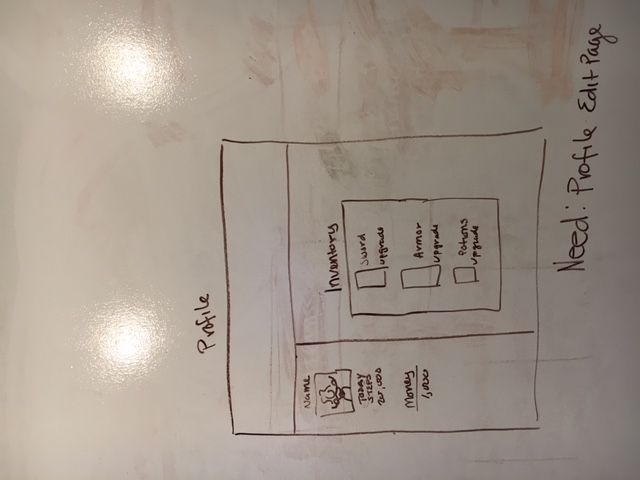 Profile
Name
TODAY
STEPS
20,000
Money
1,000
Inventory
Sword
upgrade
Armor
upgrade
Potions
upgrade
Need: Profile Edit Page